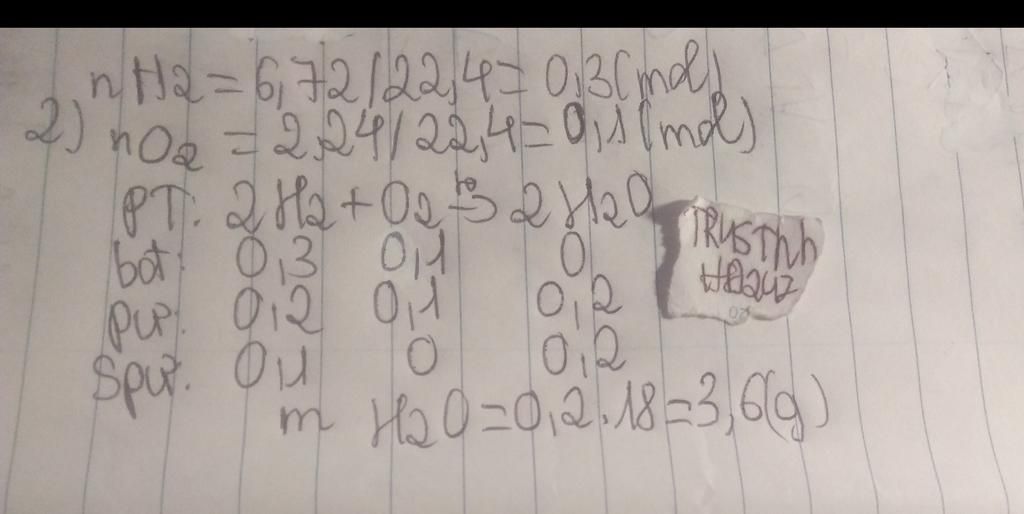 nH2 = 6,72/22,4 = 0,3 (mol)
2) nO2 = 2,24/22,4 = 0,1 (mol)
PT: 2H2 + O2 → 2H2O
bđ: 0,3 0,1 0
pư: 0,2 0,1 0,2
Spư: 0,1 0 0,2
m H2O = 0,2.18 = 3,6(g)